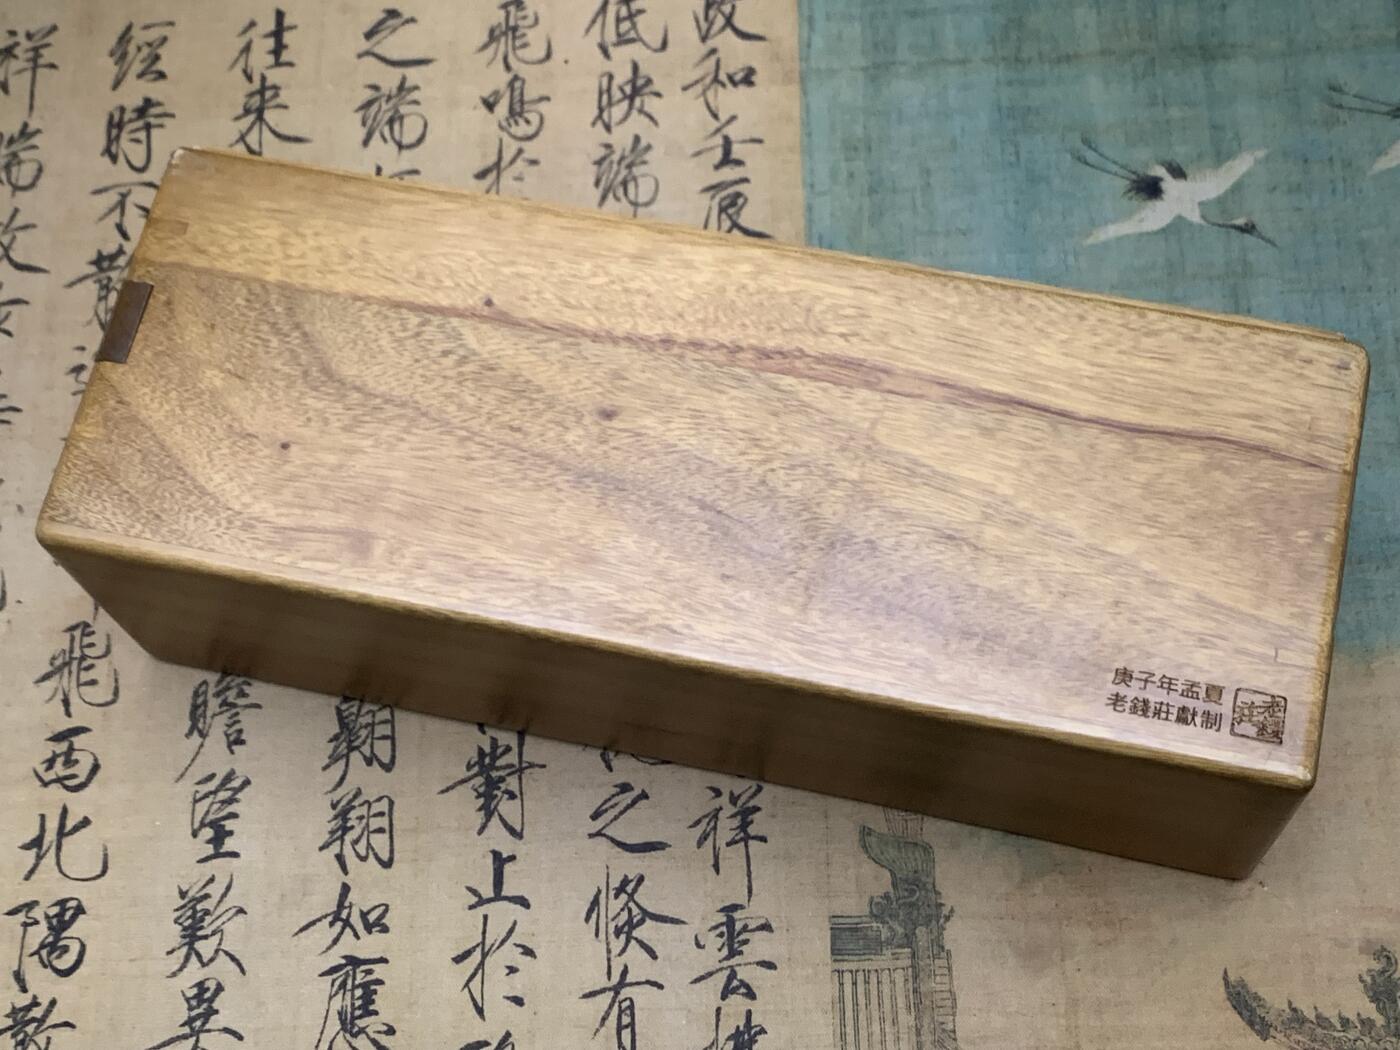 政和壬辰
祥雲
低映端
之倏有
飛鳴於
對止於
之端
翱翔如應
往来
瞻望歎異
經時不散
飛西北隅散
祥瑞故
庚子年孟夏
老錢莊獻制
老錢莊